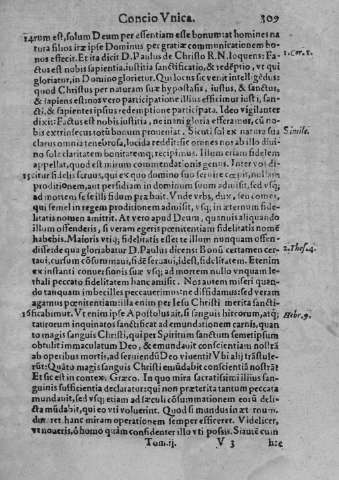 Concio Vnica. 309
14 rum est, solum Deum per essentiam esse bonum: at homines na
tura filios iræ ipse Dominus per gratiæ communicationem bo-
nos effecit. Et ita dicit D. Paulus de Christo R. N. loquens: Fa- 1. Cor. 1.
ctus est nobis sapientia, iustitia sanctificatio, & redéptio, vt qui
gloriatur, in Domino glorietur. Qui locus sic venit intelligédus:
quod Christus per naturam suæ hypostasis, iustus, & sanctus,
& sapiens est: nos vero participatione illius efficimur iusti, san-
cti, & sapientes ipsius redemptione participata. Ideo vigilanter
dixit: Factus est nobis, iustitia, ne in mei gloria efferamus, cú no-
bis extrinsecus totú bonum proueniat. Sicut sol ex natura sua Simile.
clarus omnia tenebrosa, lucida reddit: sic omnes nos ab illo diui
no sole claritatem bonitatemq; recipimus. Illum etiam fidelem
appellat, quod est mirum commendationis genus. Inter vos di-
15 citur fidelis seruus, qui ex quo domino suo seruire cœpit, nullam
proditionem, aut perfidiam in dominum suum admisit, sed vsq;
ad mortem sese illi fidum præbuit. Vnde vrbs, dux, seu comes,
qui semel in regem proditionem admisit, vsq; in æternum fide-
litatis nomen amittit. At vero apud Deum, quamuis aliquando
illum offenderis, si veram egeris pœnitentiam fidelitatis nomé
habebis. Maioris vtiq; fidelitatis esset te illum nunquam offen-
disse: de qua gloriabatur D. Paulus dicens: Bonú certamen cer- 2. Thes. 4.
taui, cursum cósummaui, fidé seruaui, idest, fidelitatem. Etenim
ex instanti conuersionis suæ vsq; ad mortem nullo vnquam le-
thali peccato fidelitatem hanc amisit. Nos autem miseri quan-
do tanquam imbecilles peccauerimus ne diffidamus sed veram
agamus pœnitentiam: illa enim per Iesu Christi merita sancti-
16 ficabimur. Vt enim ipse Apostolus ait, si sanguis hircorum, atq; Hebr. 9.
taurorum inquinatos sanctificat ad emundationem carnis, quan
to magis sanguis Christi, qui per Spiritum sanctum semetipsum
obtulit immaculatum Deo, & emundauit conscientiam nostrã
ab operibus mortis, ad seruiendú Deo viuenti? Vbi alij trástule-
rút: Quáto magis sanguis Christi emúdabit conscientiã nostrã?
Et sic est in contex. Græco. In quo mira sacratissimi illius san-
guinis sufficientia declaratur: qui non præterita tantum peccata
mundauit, sed vsq; etiam ad sæculi cósummationem eorú deli-
cta múdabit, qui eo vti voluerint. Quod si mundus in æt
ret hanc miram operationem semper efficeret. Videlicet,
vt noueris, ô homo quàm confidenter illo vti possis. Siautē cum
Tom. ij. V 3 hæc